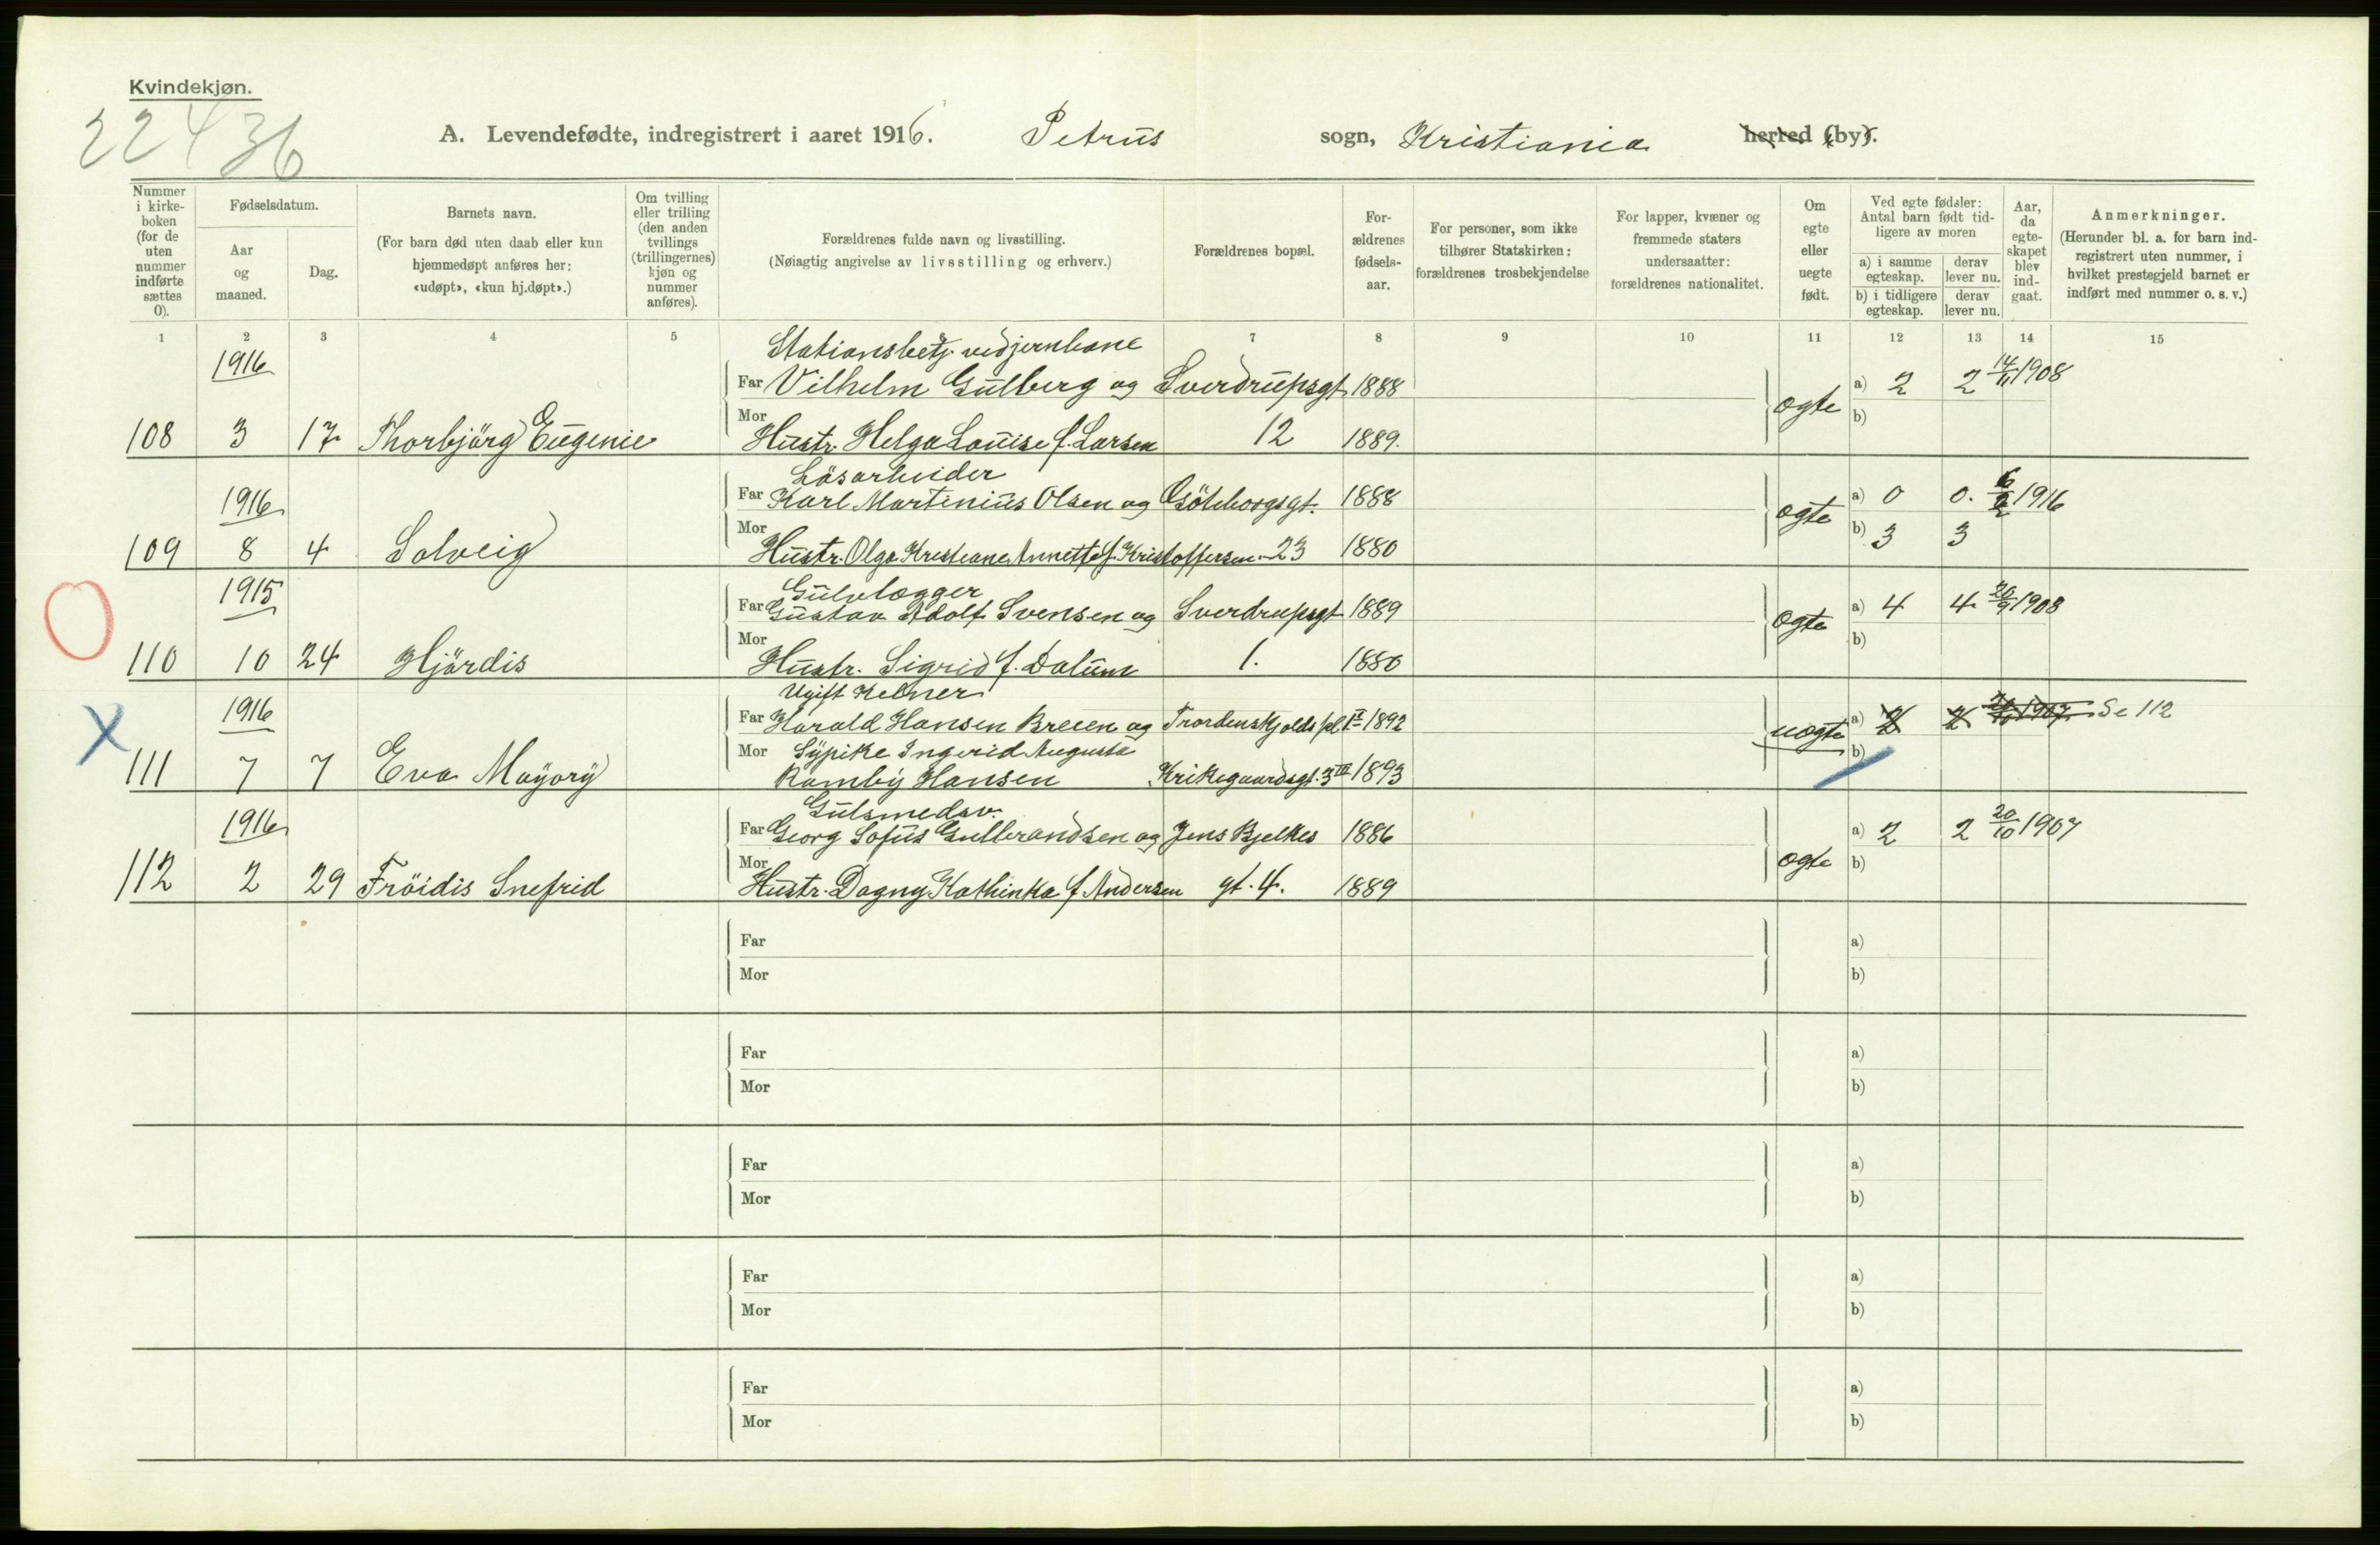 Kvindekjøn.
22436
A. Levendefødte, indregistrert i aaret 1916. Petrus sogn, Kristiania herred (by).
Nummer i kirkeboken (for de uten nummer indførte sættes 0).
Fødselsdatum.
Aar og maaned.
Dag.
Barnets navn.
(For barn død uten daab eller kun hjemmedøpt anføres her: «udøpt», «kun hj.døpt».)
Om tvilling eller trilling (den anden tvillings (trillingernes) kjøn og nummer anføres).
Forældrenes fulde navn og livsstilling.
(Nøiagtig angivelse av livsstilling og erhverv.)
Forældrenes bopæl.
Forældrenes fødselsaar.
For personer, som ikke tilhører Statskirken: forældrenes trosbekjendelse
For lapper, kvæner og fremmede staters undersaatter: forældrenes nationalitet.
Om egte eller uegte født.
Ved egte fødsler: Antal barn født tidligere av moren
a) i samme egteskap.
derav lever nu.
b) i tidligere egteskap.
derav lever nu.
Aar, da egteskapet blev indgaat.
Anmerkninger.
(Herunder bl. a. for barn indregistrert uten nummer, i hvilket prestegjeld barnet er indført med nummer o. s. v.)
1 2 3 4 5 7 8 9 10 11 12 13 14 15
1916 Stationsbetj. ved jernbane
Far Vilhelm Gulberg og Sverdrupsgt 1888 a) 2 2 14/11 1908
Mor ægte b)
108 3 17 Thorbjörg Eugenie Hustr. Helga Louise f. Larsen 12 1889.
Lösarbeider
1916 Far Karl Martinius Olsen og Göteborgsgt. 1888 a) 0 0. 6/2 1916
Mor ægte b) 3 3
109 8 4 Solveig Hustr. Olga Kristiane Annette f. Kristoffersen 23 1880
1915 Gulvlægger
Far Gustav Adolf Svensen og Sverdrupsgt 1889 a) 4 4 20/9 1908
Mor ægte b)
110 10 24 Hjördis Hustr. Sigrid f. Dalum 1. 1880
Ugift Kelner
1916 Far Harald Hansen Breien og Tordenskjolds pl 1 1892 uægte a) 2 2 20/10 1907 Se 112
Mor Sypike Ingerid Augusta b)
111 7 7 Eva Mayory Ramby Hansen Krikegaardsgt. 3 III 1893
Gulsmedsv.
1916 Far Georg Sofus Gulbrandsen og Jens Bjelkes 1886 a) 2 2 20/10 1907
Mor ægte b)
112 2 29 Fröidis Snefrid Hustr. Dagny Kathinka f. Andersen gt. 4. 1889
Far a)
Mor b)
Far a)
Mor b)
Far a)
Mor b)
Far a)
Mor b)
Far a)
Mor b)